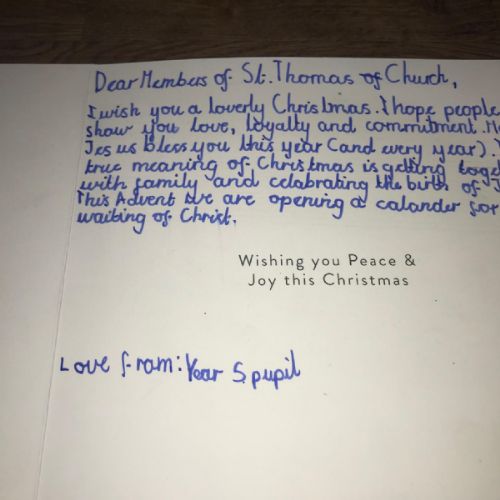 Dear Members of St. Thomas of Church,
I wish you a loverly Christmas. I hope people
show you love, loyalty and commitment.
Jesus bless you this year (and every year).
true meaning of Christmas is getting
with family and celabrating the birth of
This Advent we are opening a calander for
waiting of Christ.
Wishing you Peace &
Joy this Christmas
Love from: Year 5 pupil